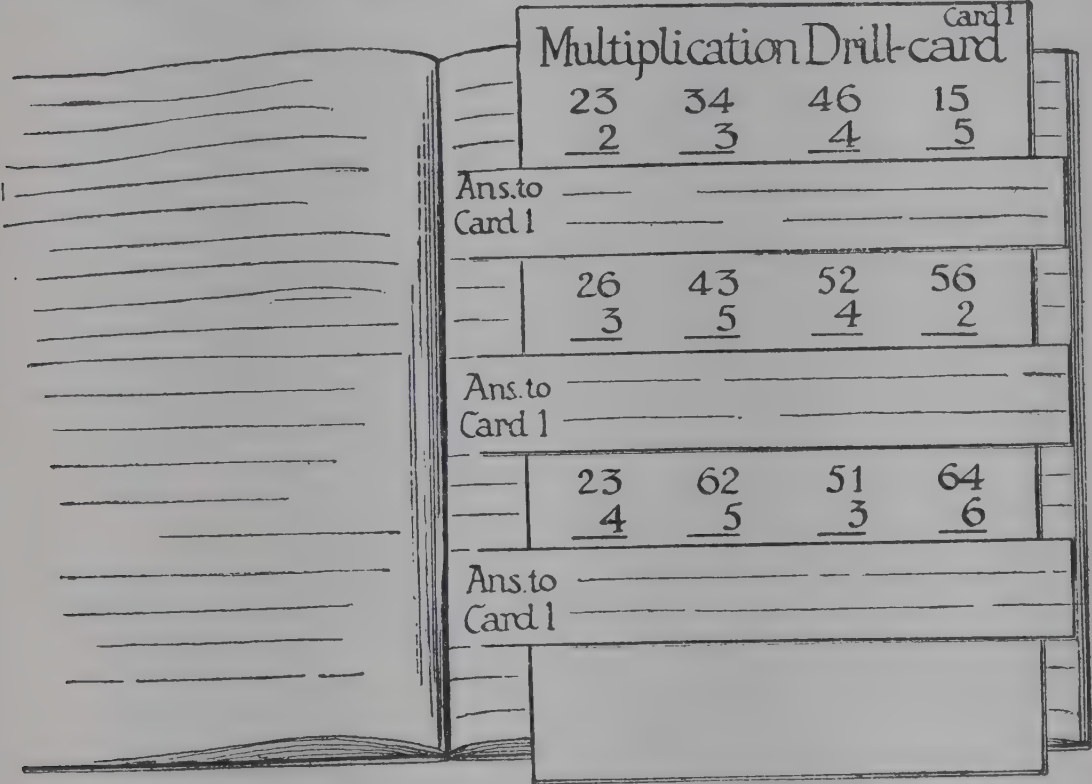 Card 1
Multiplication Drill-card
23 34 46 15
2 3 4 5
Ans. to
Card 1
26 43 52 56
3 5 4 2
Ans. to
Card 1
23 62 51 64
4 5 3 6
Ans. to
Card 1